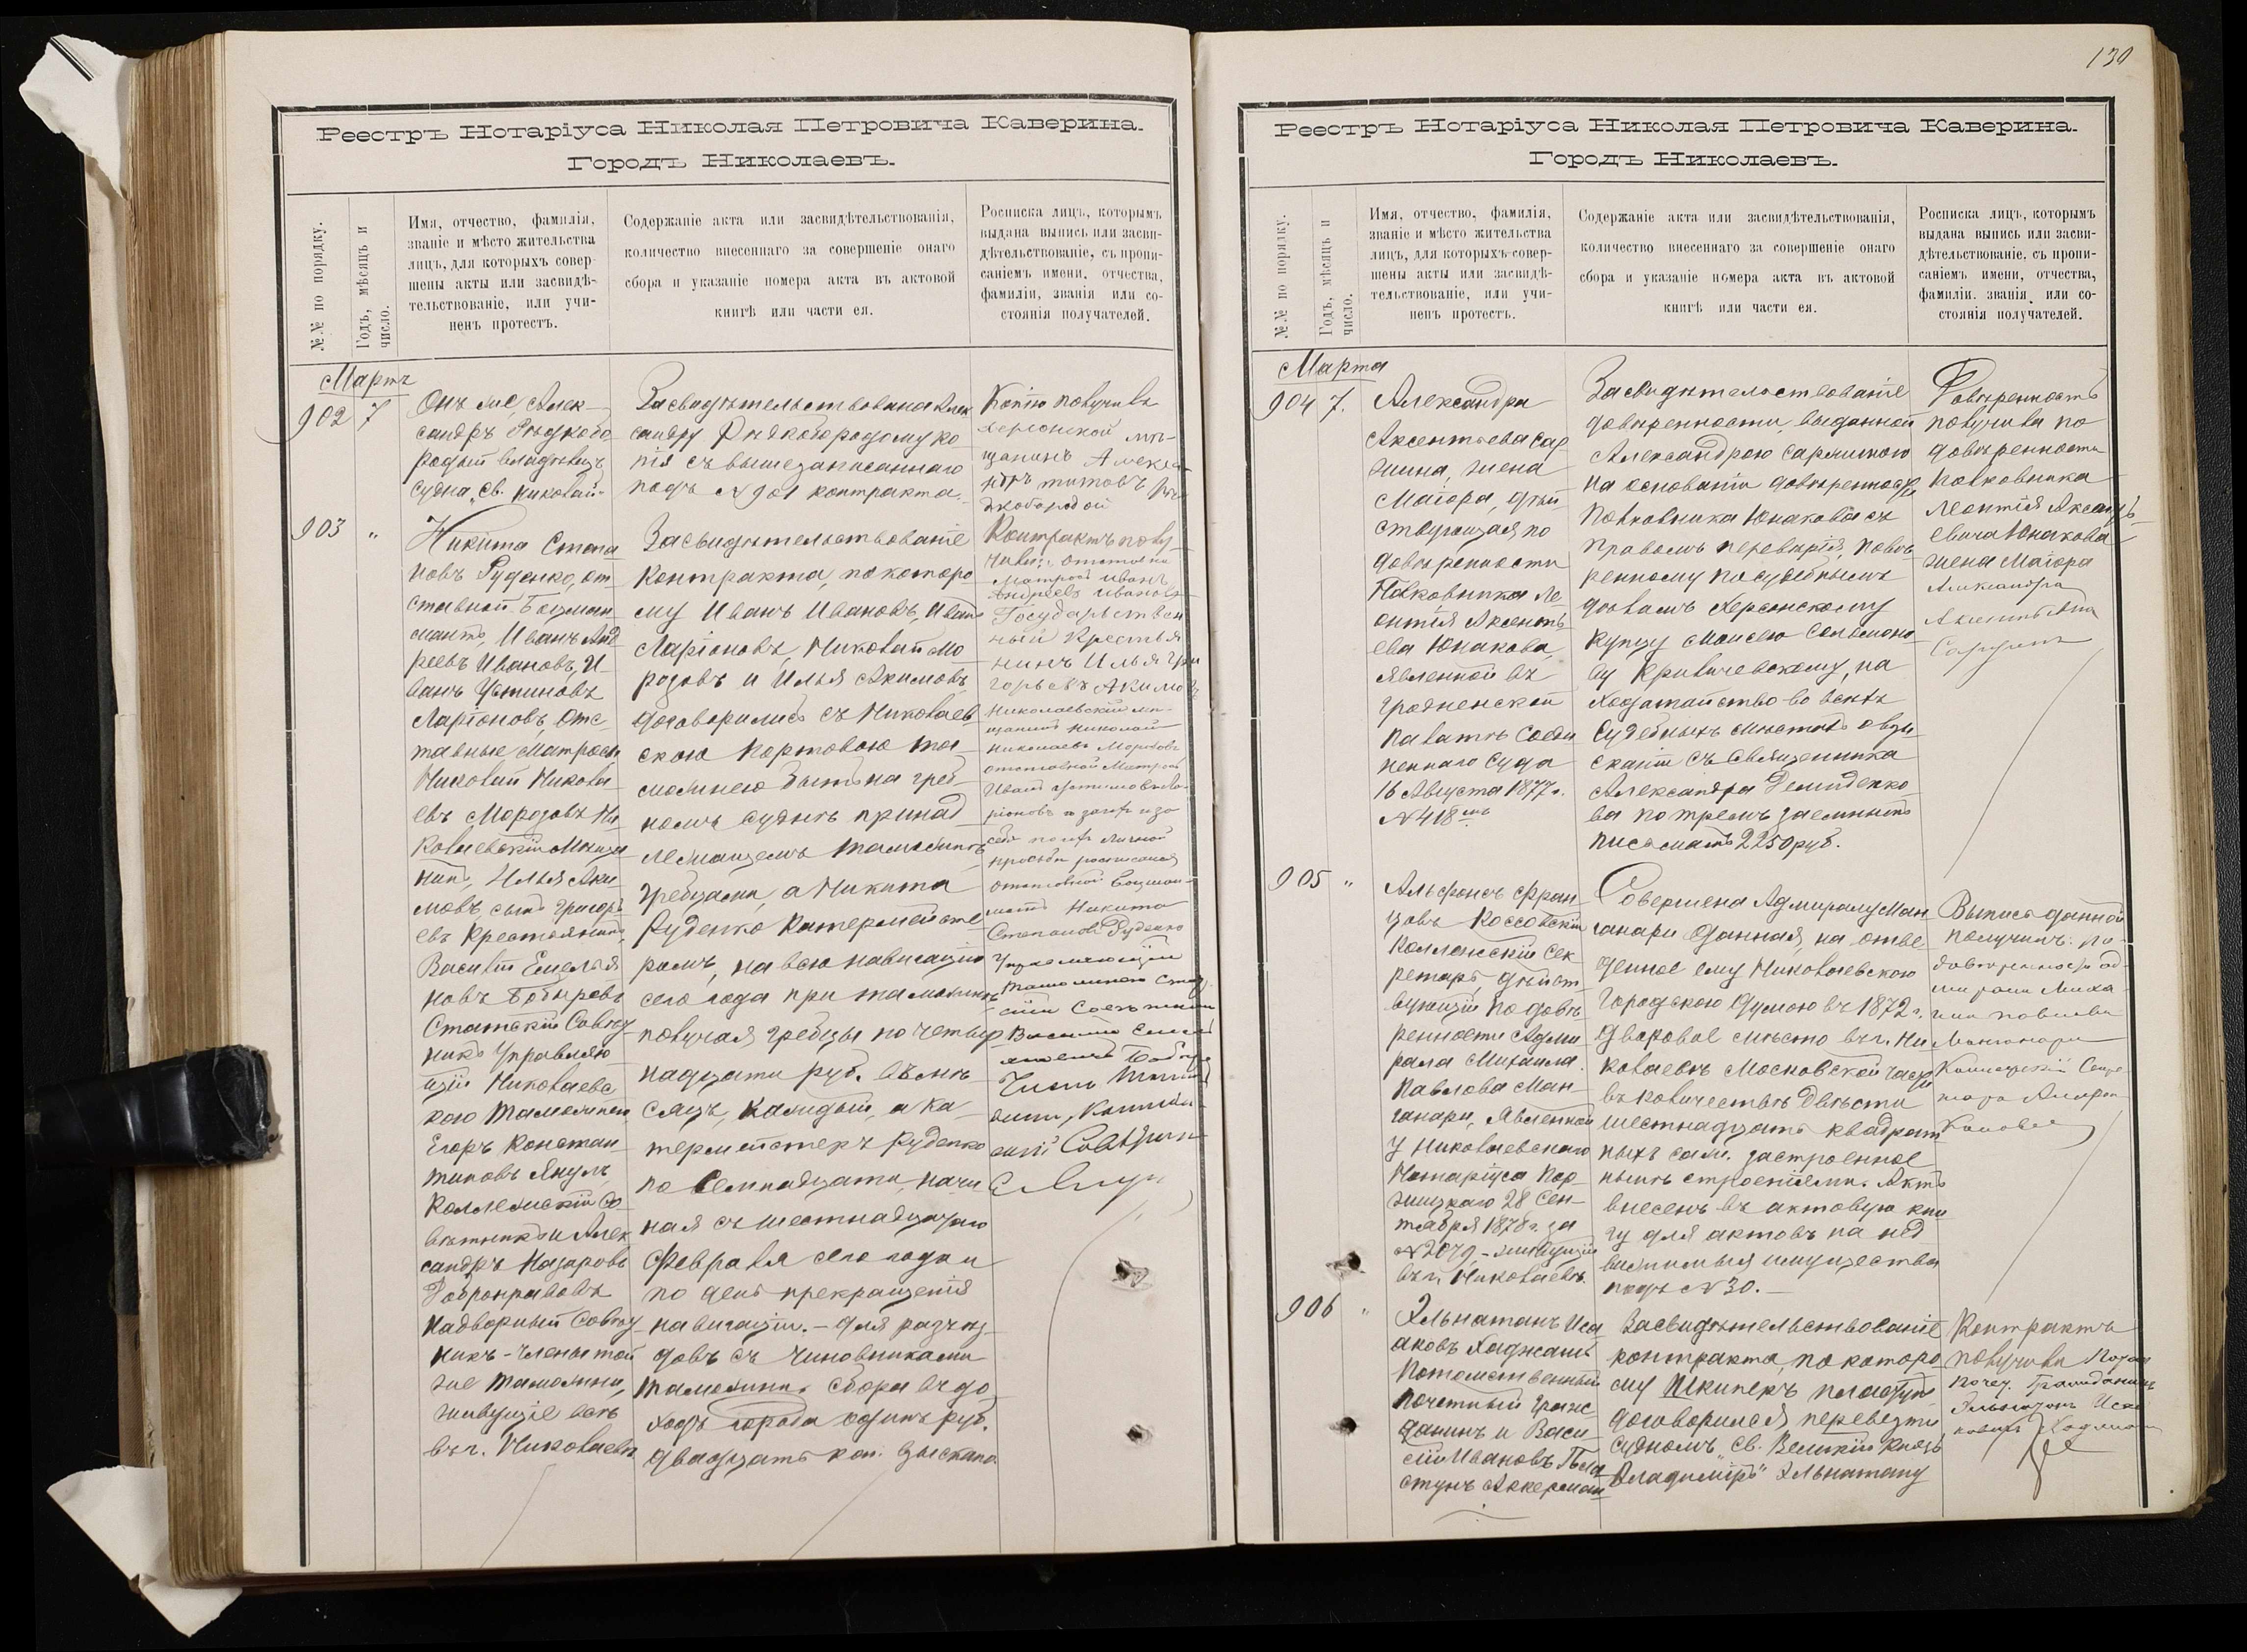 Реестръ Нотаріуса Николая Петровича Каверина.
Городъ Николаевъ.
№№ по порядку.
Годъ, мѣсяцъ и
число.
Имя, отчество, фамилія,
званіе и мѣсто жительства
лицъ, для которыхъ совер-
шены акты или засвидѣ-
тельствованіе, или учи-
ненъ протестъ.
Содержаніе акта или засвидѣтельствованія,
количество внесеннаго за совершеніе онаго
сбора и указаніе номера акта въ актовой
книгѣ или части ея.
Росписка лицъ, которымъ
выдана выпись или засви-
дѣтельствованіе, съ пропи-
саніемъ имени, отчества,
фамиліи, званія или со-
стоянія получателей.
Мартъ
902 7
Онъ же, Алек-
сандръ Рѣдкобо
родый владѣлецъ
судна „Св. Николай“
Засвидѣтельствована Алек
сандру Рѣдкобородому ко
пія съ вышезаписаннаго
подъ № 901 контракта.
Копію получилъ
херсонской мѣ-
щанинъ Алекса
ндръ титовъ Рѣ
дкобородой
903 "
Никита Степа
новъ Руденко, от
ставной Боцман
матъ, Иванъ Анд
реевъ Ивановъ, И-
ванъ Устиновъ
Ларіоновъ, отс
тавные матросы
Николай Никола
евъ Морозовъ Ни
колаевскій Мѣща
нинъ, Илья Аки
мовъ, сынъ Григорь
евъ Крестьянинъ,
Василій Емелья
новъ Бобыревъ
Статскій Совѣт
никъ Управляю
щій Николаевс
кою таможнею,
Егоръ Констан
тиновъ Янулъ
Коллежскій Со
вѣтникъ и Алек
сандръ Назаровъ
Добронравовъ
Надворный Совѣт
никъ - члены той
же таможни,
живущіе всѣ
въ г. Николаевѣ.
Засвидѣтельствованіе
контракта, по которо
му Иванъ Ивановъ, Иванъ
Ларіоновъ, Николай Мо
розовъ и Илья Акимовъ
договорились съ Николаев
скою портовою та
можнею быть на греб
номъ суднѣ принад
лежащемъ таможнѣ
гребцами, а Никита
Руденко Катермейсте
ромъ, на всю навигацію
сего года при таможнѣ
получая гребцы по четыр
надцати руб. въ мѣ
сяцъ, каждый, а ка
термейстеръ Руденко
по семнадцати, начи
ная съ шестнадцатаго
Февраля сего года и
по день прекращенія
навигаціи. - для разъѣз
довъ съ чиновниками
таможни. Сбора въ до
ходъ города одинъ руб.
двадцать коп. взыскано.
Контрактъ полу
чили: отставна
Матрос иванъ
Андреевъ Ивановъ
Государствен
ный Крестья
нинъ Илья Гри
горьевъ Акимовъ
Николаевскій мѣ-
щанинъ Николай
Николаевъ Морозовъ
отставной Матросъ
Иванъ Устиновъ Ла-
ріоновъ а за нихъ и за
себя по ихъ личной
просьбѣ росписался
отставной боцман-
матъ Никита
Степановъ Руденко
Управляющій
таможнею Стат
скій Совѣтникъ
Василій Емель
яновичъ Бобыре
Членъ Тамож
Совѣтник
Янул
130
Реестръ Нотаріуса Николая Петровича Каверина.
Городъ Николаевъ.
№№ по порядку.
Годъ, мѣсяцъ и
число.
Имя, отчество, фамилія,
званіе и мѣсто жительства
лицъ, для которыхъ совер-
шены акты или засвидѣ-
тельствованіе, или учи-
ненъ протестъ.
Содержаніе акта или засвидѣтельствованія,
количество внесеннаго за совершеніе онаго
сбора и указаніе номера акта въ актовой
книгѣ или части ея.
Росписка лицъ, которымъ
выдана выпись или засви-
дѣтельствованіе, съ пропи-
саніемъ имени, отчества,
фамиліи. званія или со-
стоянія получателей.
Марта
904 7.
Александра
Аксентьева Сар
жина, жена
Маіора, дѣй
ствующая по
довѣренности
Полковника Ле
онтія Аксенть
ева Юнакова,
явленной въ
гродненской
палатѣ соеди
неннаго суда
16 Августа 1877 г.
№ 418 мъ
Засвидѣтельствованіе
довѣренности, выданной
Александрою Саржиною
на основаніи довѣренности
Полковника Юнакова съ
правомъ перевѣрія, повѣ
ренному по судебнымъ
дѣламъ Херсонскому
купцу Моисею Соломоно
ву Кривичевскому, на
ходатайство во всѣхъ
судебныхъ мѣстахъ о взы
сканіи съ Священника
Александра Демиденко
ва по тремъ заемнымъ
письмамъ 2250 руб.
Довѣренность
получила по
довѣренности
Полковника
Леонтія Аксентъ
евича Юнакова
жена Маіора
Александра
905 "
Альфонсъ Фран
цовъ Коссовскій
Коллежскій Сек
ретарь, дѣйст
вующій по довѣ
ренности Адми
рала Михаила
Павлова Ман-
ганари, явленной
у Николаевскаго
Нотаріуса Пор
жицкаго 28 Сен-
тября 1878 г. за
№ 2079 - живущій
въ г. Николаевѣ.
Совершена Адмиралу Ман
ганари данная, на отве
денное ему Николаевскою
Городскою Думою въ 1872 г.
дворовое мѣсто въ г. Ни
колаевѣ Московской части
въ количествѣ двѣсти
шестнадцать квадрат
ныхъ саж. застроенное
нымъ строеніями. Актъ
внесенъ въ актовую кни
гу для актовъ на нед
вижимыя имущества
подъ № 30. -
Выпись данной
получилъ: по
довѣренности ад-
мирала Миха-
ила павлова
Манганари
Коллежскій Секре-
тарь
906 "
Эльнатанъ Иса
аковъ Хаджашъ
Потомственный
почетный граж
данинъ и Васи
лій Ивановъ Пла
стунъ Аккерман
Засвидѣтельствованіе
контракта, по которо
му Шкиперъ пластунъ
договорился перевезти
судномъ „Св. Великій Князь
Владиміръ“ Эльнатану
Контрактъ
получилъ Потом
почет. Гражданинъ
Эльнатанъ Исаа
ковичъ